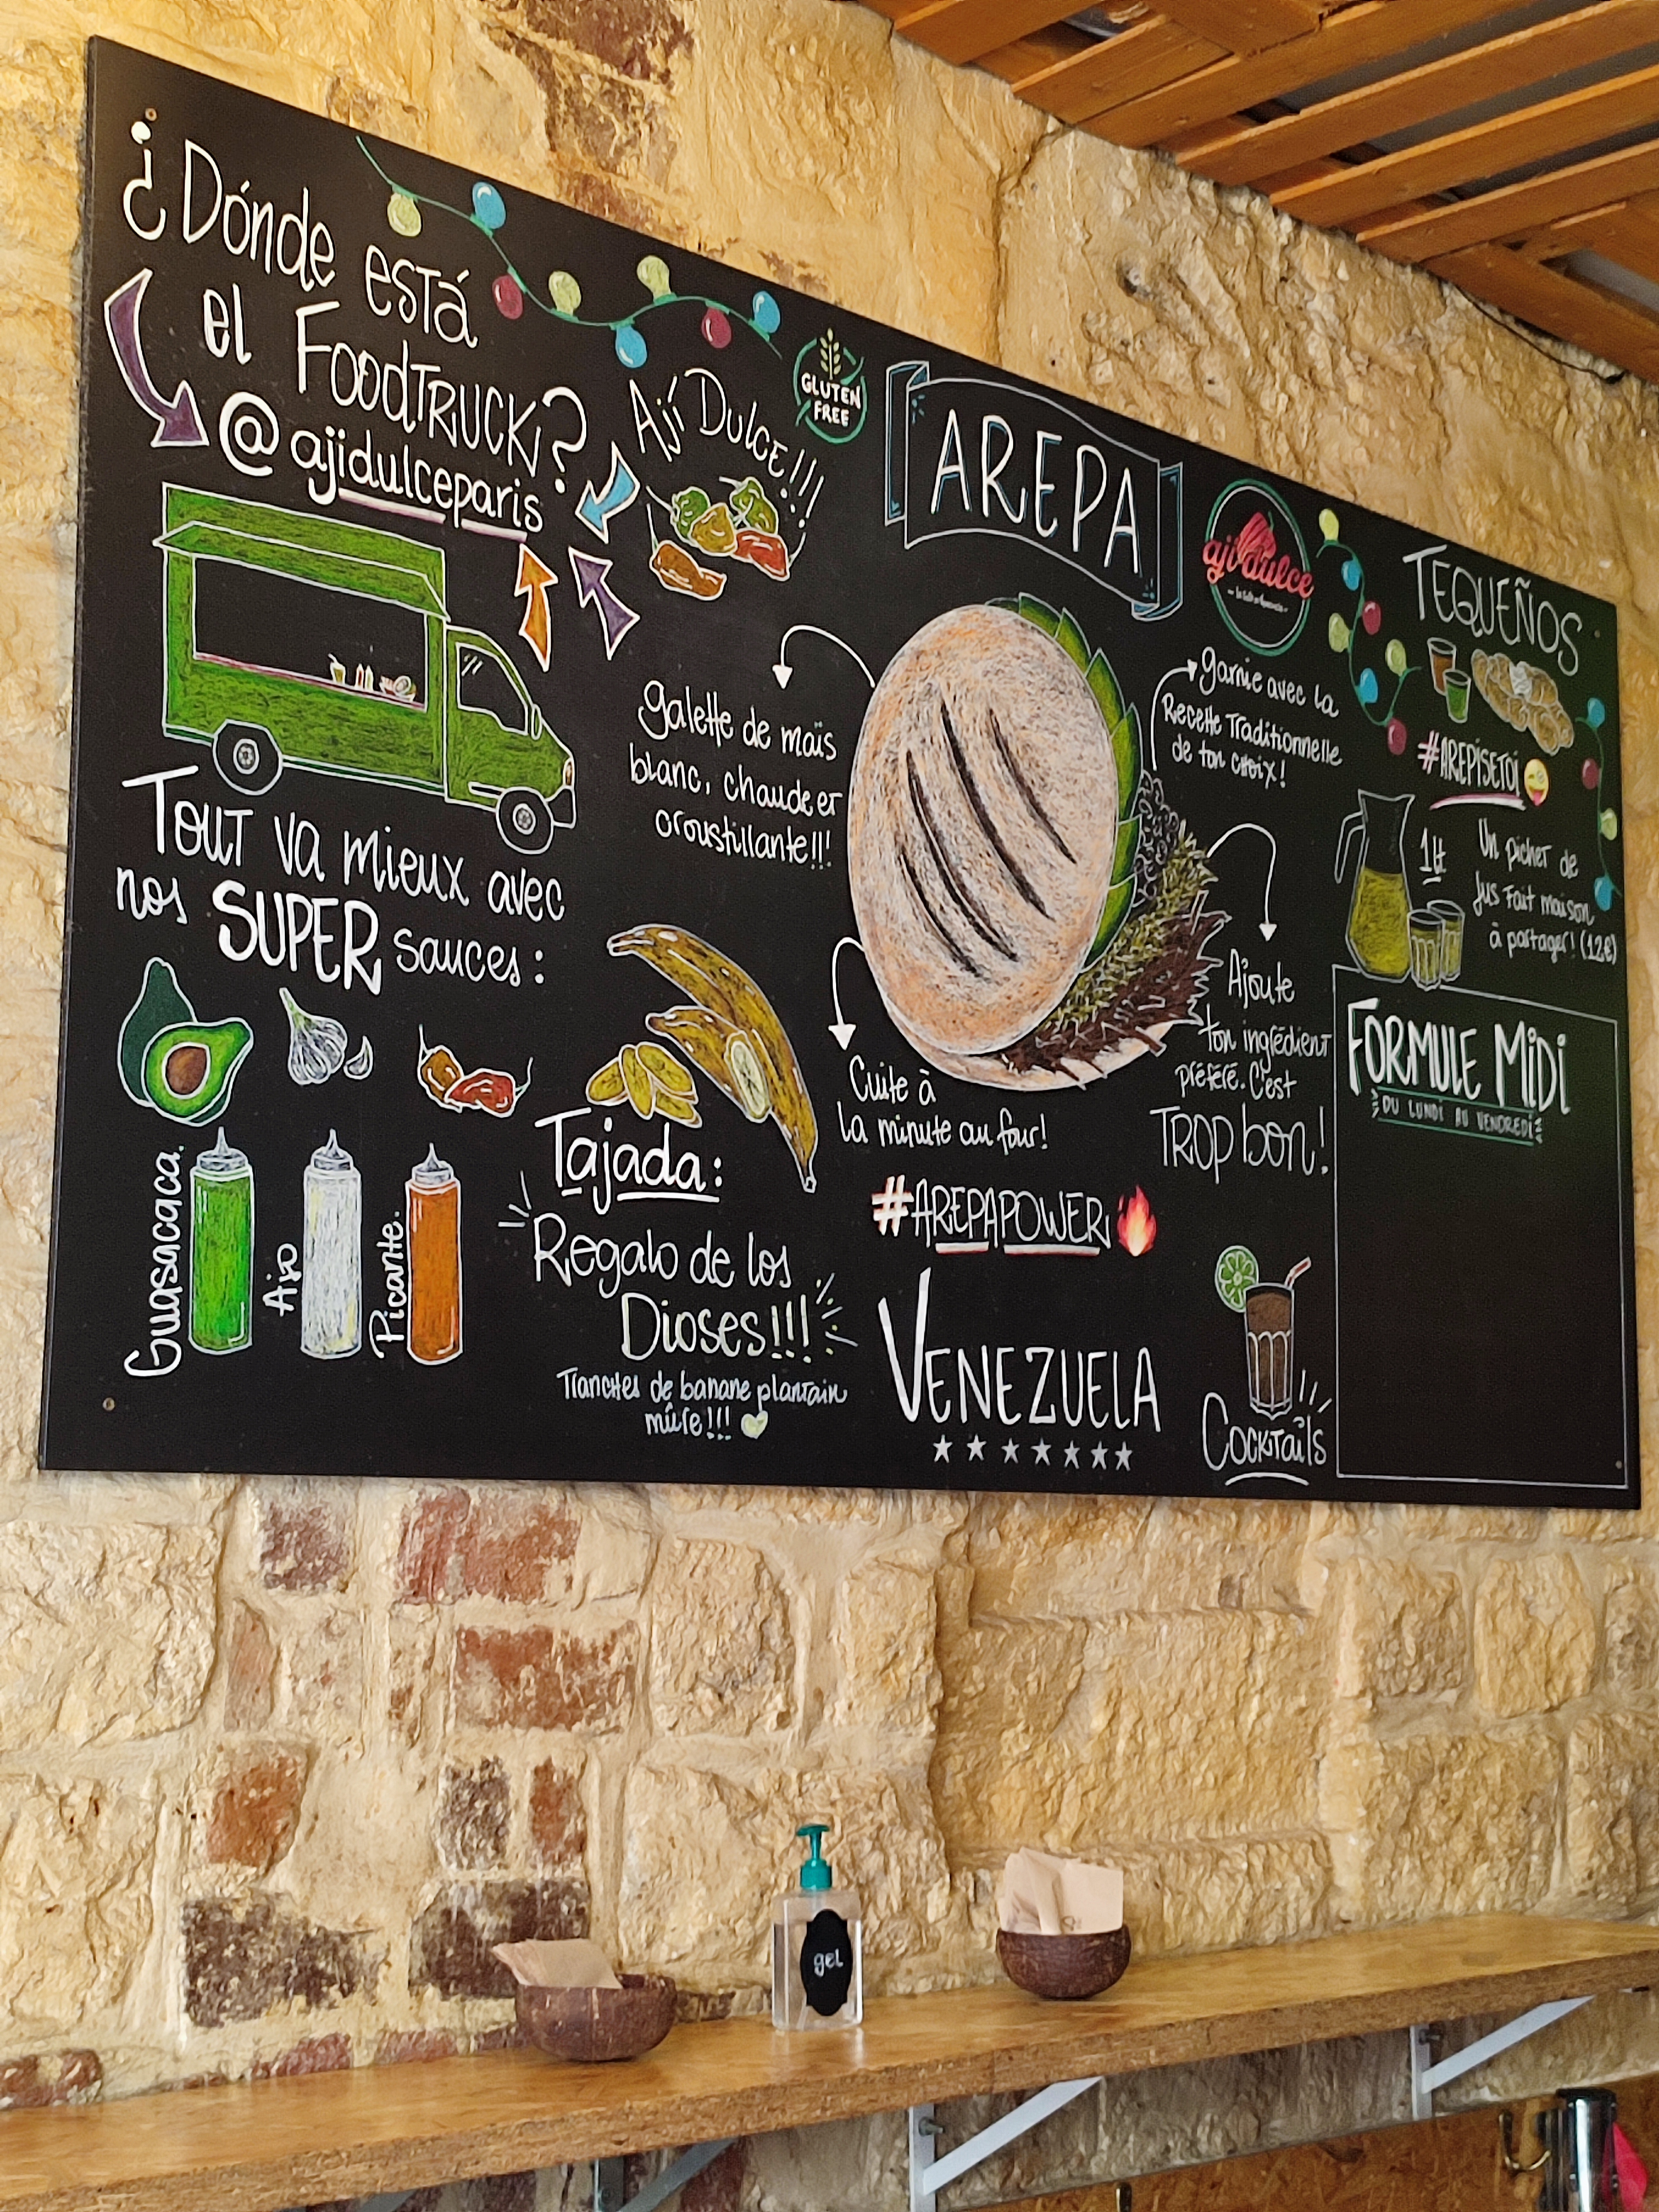 ¿Dónde está
el FoodTruck?
@ajidulceparis
Ají Dulce!!!
GLUTEN
FREE
AREPA
aji dulce
TEQUEÑOS
#AREPISETOI
1Lt
Un pichet de
jus fait maison
à partager! (12€)
galette de maïs
blanc, chaude et
croustillante!!!
garnie avec la
Recette Traditionnelle
de ton choix!
Ajoute
ton ingrédient
préféré. C'est
TROP bon!
Cuite à
la minute au four!
#AREPAPOWER
Tout va mieux avec
nos SUPER sauces:
Guasacaca.
Ajo
Picante.
Tajada:
Regalo de los
Dioses!!!
Tranches de banane plantain
mûre!!!
VENEZUELA
Cocktails
FORMULE MIDI
DU LUNDI AU VENDREDI
gel